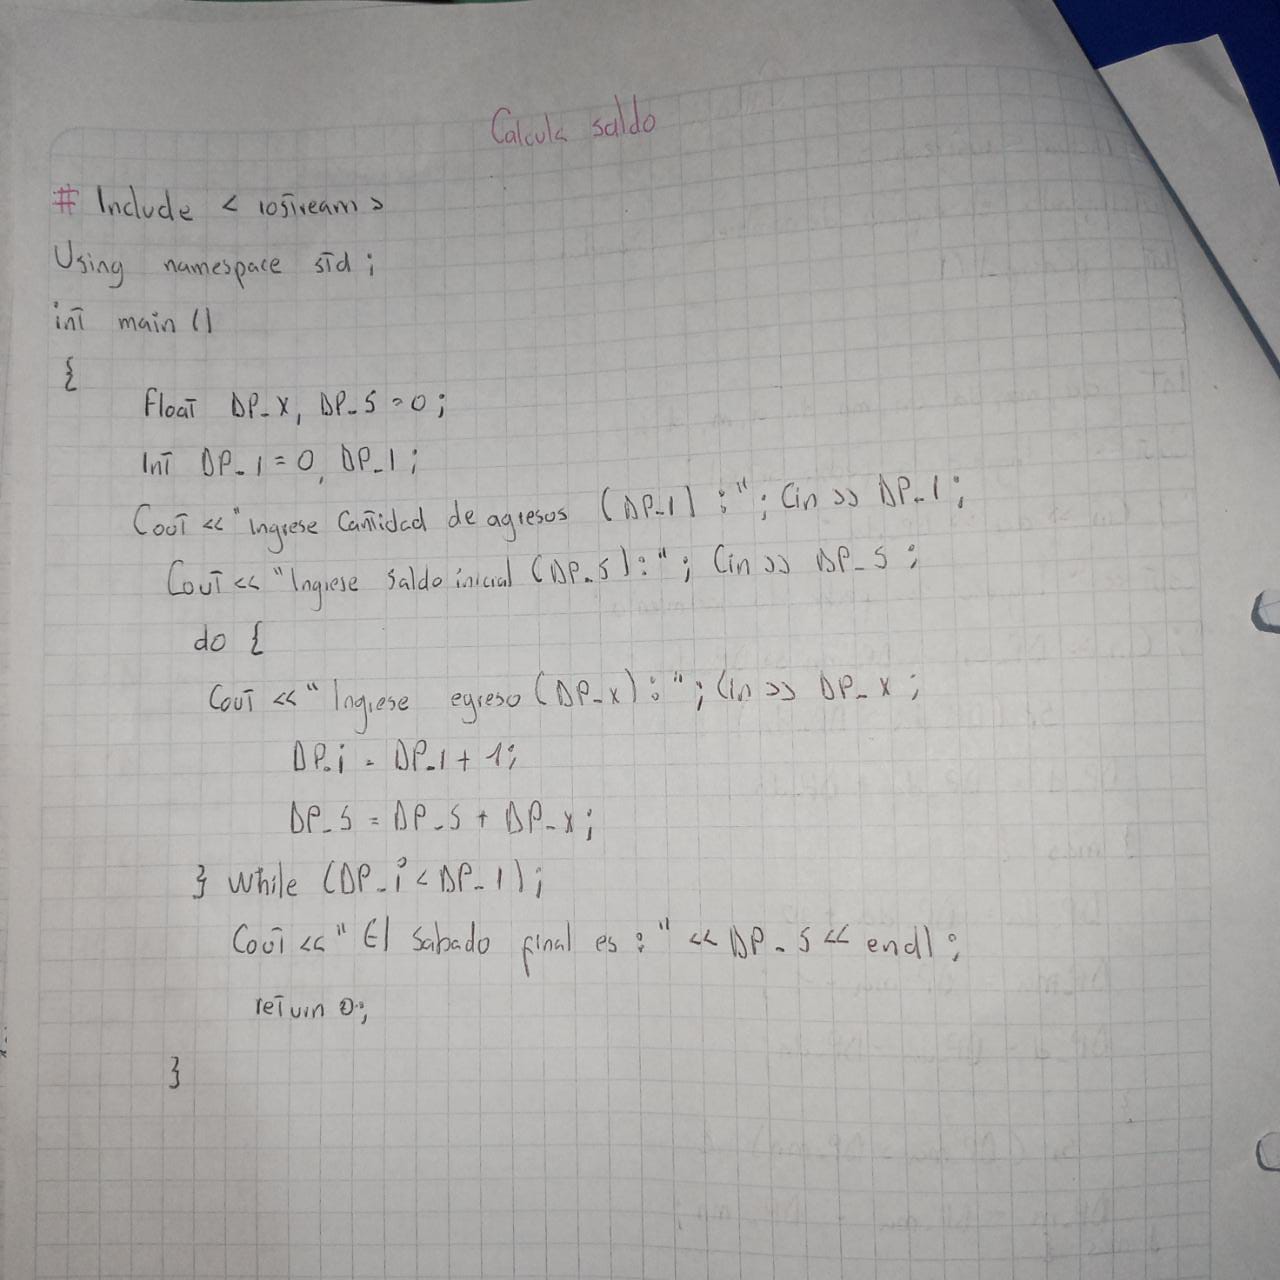 Calcula saldo
# Include < iostream >
Using namespace std ;
int main ()
{
Float DP_X, DP_S = 0 ;
Int DP_1 = 0, DP_1 ;
Cout << "Ingrese Cantidad de agresos (DP_1) :" ; Cin >> DP_1 ;
Cout << "Ingrese Saldo inicial (DP_S) :" ; Cin >> DP_S ;
do {
Cout << " Ingrese egreso (DP_x) : " ; Cin >> DP_x ;
DP_i = DP_1 + 1;
DP_S = DP_S + DP_x ;
} while (DP_i < DP_1) ;
Cout << " El Sabado final es : " << DP_S << endl ;
return 0 ;
}